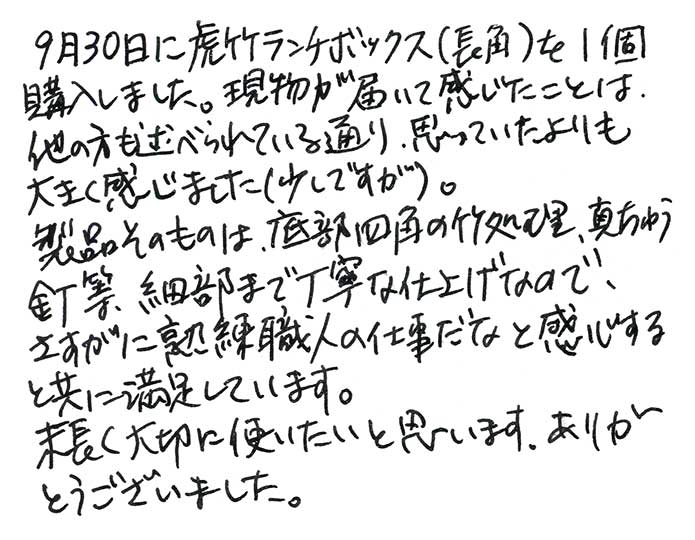 9月30日に虎竹ランチボックス(長角)を1個
購入しました。現物が届いて感じたことは、
他の方も述べられている通り、思っていたよりも
大きく感じました(少しですが)。
製品そのものは、底部四角の竹処理、真ちゅう
釘等、細部まで丁寧な仕上げなので、
さすがに熟練職人の仕事だなと感心する
と共に満足しています。
末長く大切に使いたいと思います。ありが
とうございました。